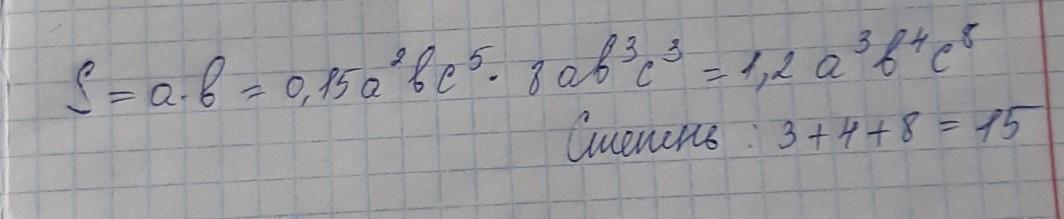 S = a·b = 0,15a²bc⁵ · 8ab³c³ = 1,2a³b⁴c⁸
Степень : 3+4+8 = 15